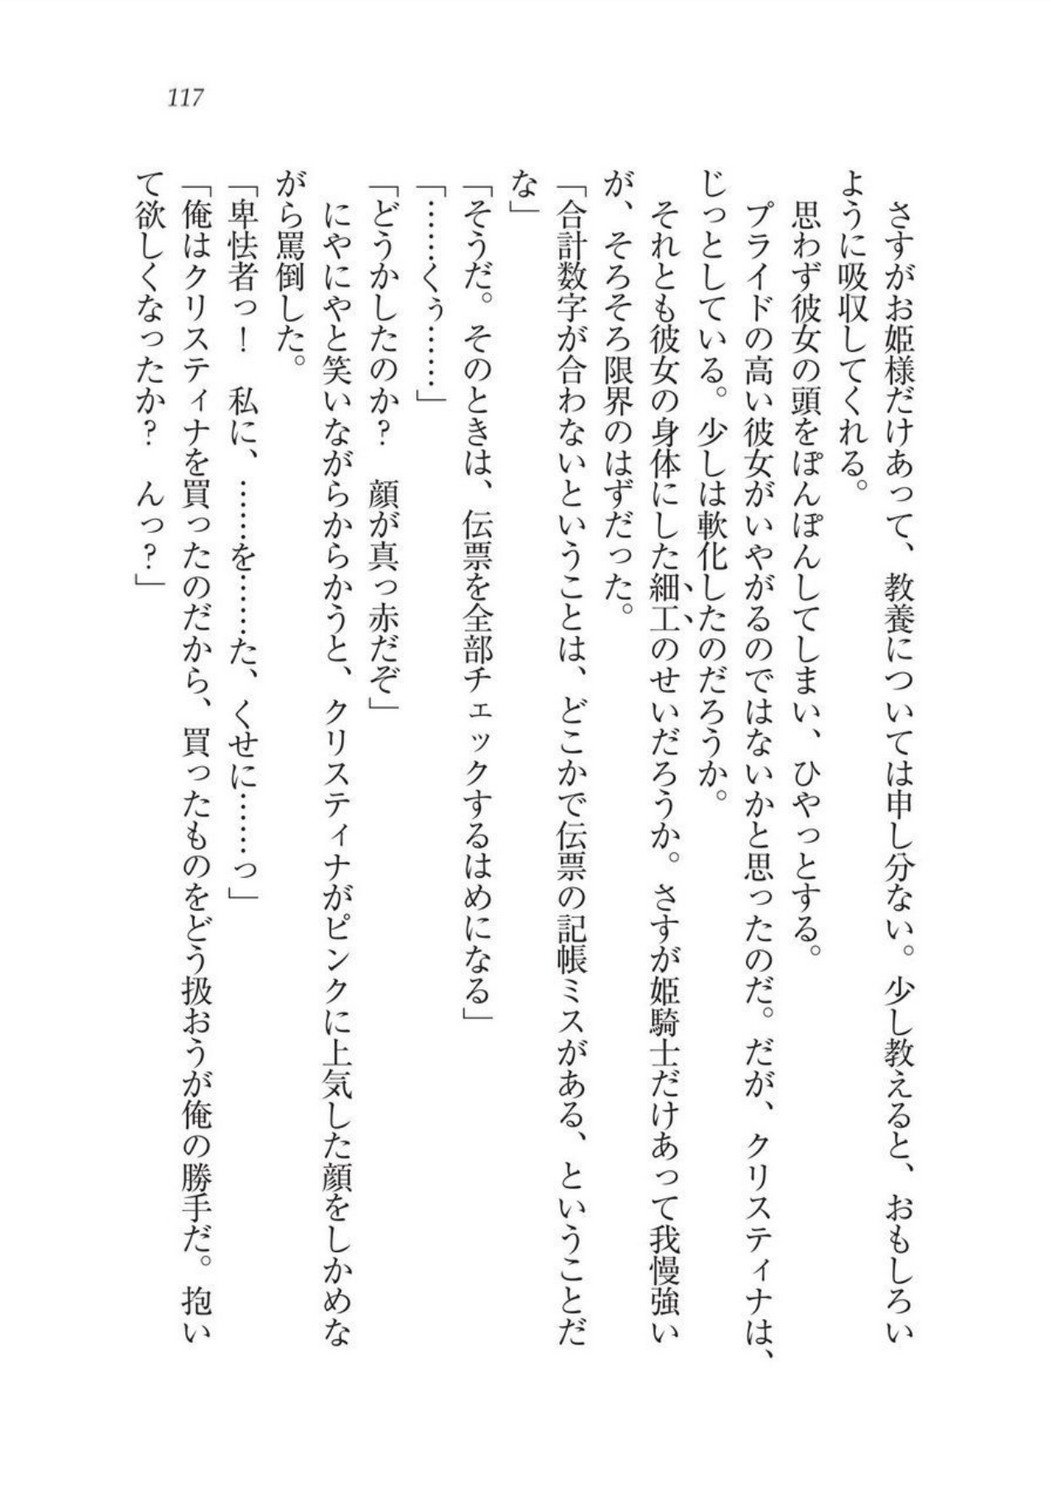 117
　さすがお姫様だけあって、教養については申し分ない。少し教えると、おもしろい
ように吸収してくれる。
　思わず彼女の頭をぽんぽんしてしまい、ひやっとする。
　プライドの高い彼女がいやがるのではないかと思ったのだ。だが、クリスティナは、
じっとしている。少しは軟化したのだろうか。
　それとも彼女の身体にした細工のせいだろうか。さすが姫騎士だけあって我慢強い
が、そろそろ限界のはずだった。
「合計数字が合わないということは、どこかで伝票の記帳ミスがある、ということだ
な」
「そうだ。そのときは、伝票を全部チェックするはめになる」
「……くぅ……」
「どうかしたのか？　顔が真っ赤だぞ」
　にやにやと笑いながらからかうと、クリスティナがピンクに上気した顔をしかめな
がら罵倒した。
「卑怯者っ！　私に、……を……た、くせに……っ」
「俺はクリスティナを買ったのだから、買ったものをどう扱おうが俺の勝手だ。抱い
て欲しくなったか？　んっ？」